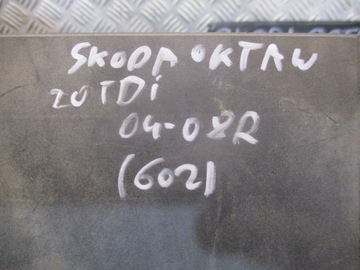 SKODA OKTAW
20TDi
04-08R
(602)